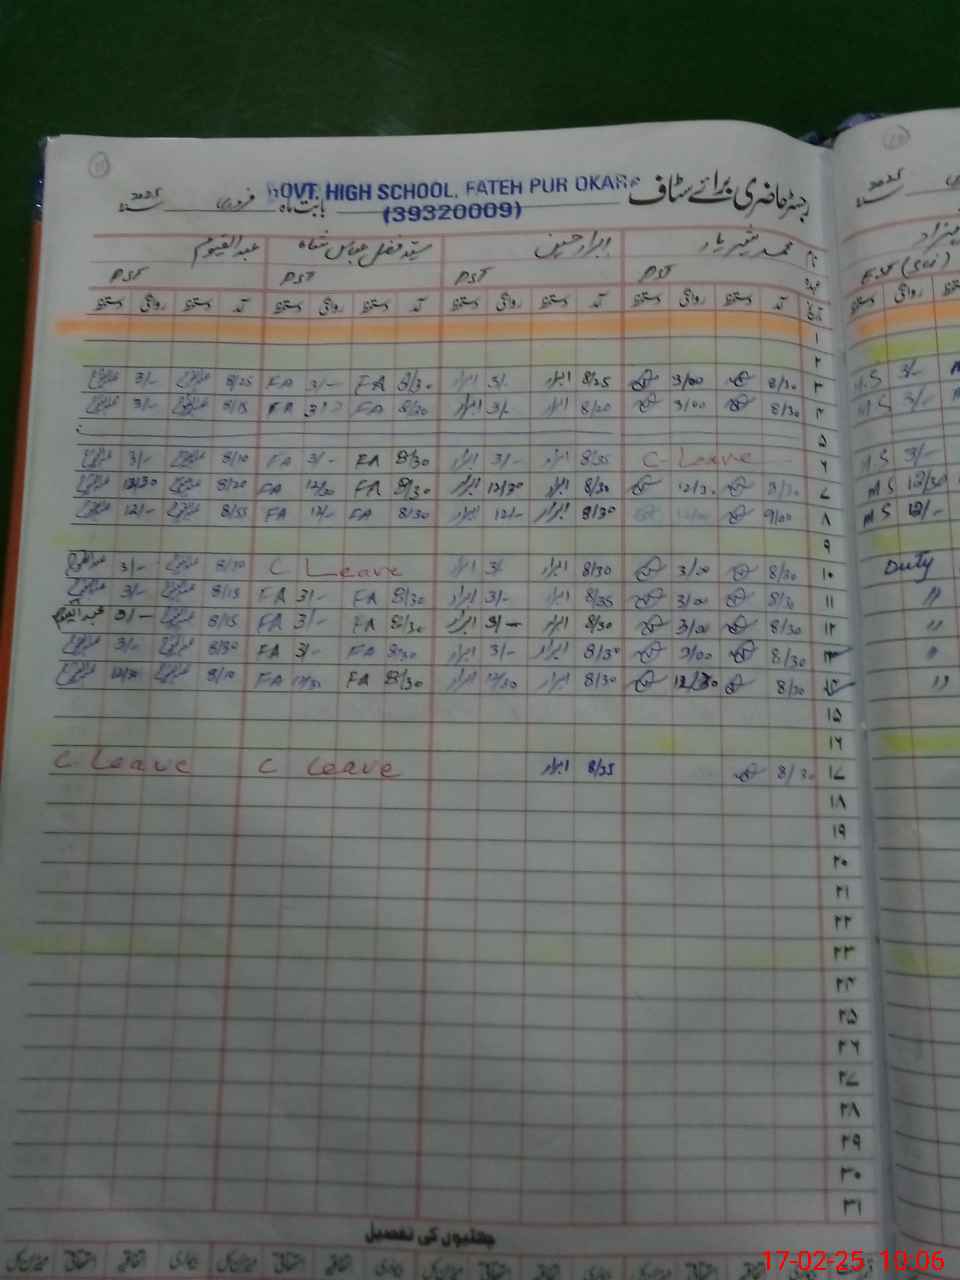 رجسٹر حاضری برائے سٹاف GOVT. HIGH SCHOOL, FATEH PUR OKARA بابت ماہ فروری سنہ 2025
(39320009)
نام محمد شہریار ابرار حسین سید فضل عباس شاہ عبدالقیوم
عہدہ PST PST PST PST
تاریخ آمد دستخط روانگی دستخط آمد دستخط روانگی دستخط آمد دستخط روانگی دستخط آمد دستخط روانگی دستخط
۱
۲
۳ 8/30 3/00 8/25 ابرار 3/- ابرار 8/30 FA 3/- FA 8/25 3/-
۴ 8/30 3/00 8/20 ابرار 3/- ابرار 8/20 FA 3/- FA 8/15 3/-
۵
۶ C Leave 8/35 ابرار 3/- ابرار 8/30 FA 3/- FA 8/10 3/-
۷ 8/30 12/30 8/30 ابرار 12/30 ابرار 8/30 FA 12/30 FA 8/20 12/30
۸ 9/00 8/30 ابرار 12/- ابرار 8/30 FA 12/- FA 8/55 12/-
۹
۱۰ 8/30 3/00 8/30 ابرار 3/- ابرار C Leave 8/30 3/-
۱۱ 8/30 3/00 8/35 ابرار 3/- ابرار 8/30 FA 3/- FA 8/15 3/-
۱۲ 8/30 3/00 8/30 ابرار 3/- ابرار 8/30 FA 3/- FA 8/15 3/- عبدالقیوم
۱۳ 8/30 3/00 8/30 ابرار 3/- ابرار 8/30 FA 3/- FA 8/30 3/-
۱۴ 8/30 12/30 8/30 ابرار 12/30 ابرار 8/30 FA 12/30 FA 8/10 12/30
۱۵
۱۶
۱۷ 8/30 8/35 ابرار C Leave C Leave
۱۸
۱۹
۲۰
۲۱
۲۲
۲۳
۲۴
۲۵
۲۶
۲۷
۲۸
۲۹
۳۰
۳۱
چھٹیوں کی تفصیل
2025
EST (Sci)
M.S 3/-
M S 3/-
M.S 3/-
M S 12/30
M S 12/-
Duty
"
"
"
"
17-02-25 10:06